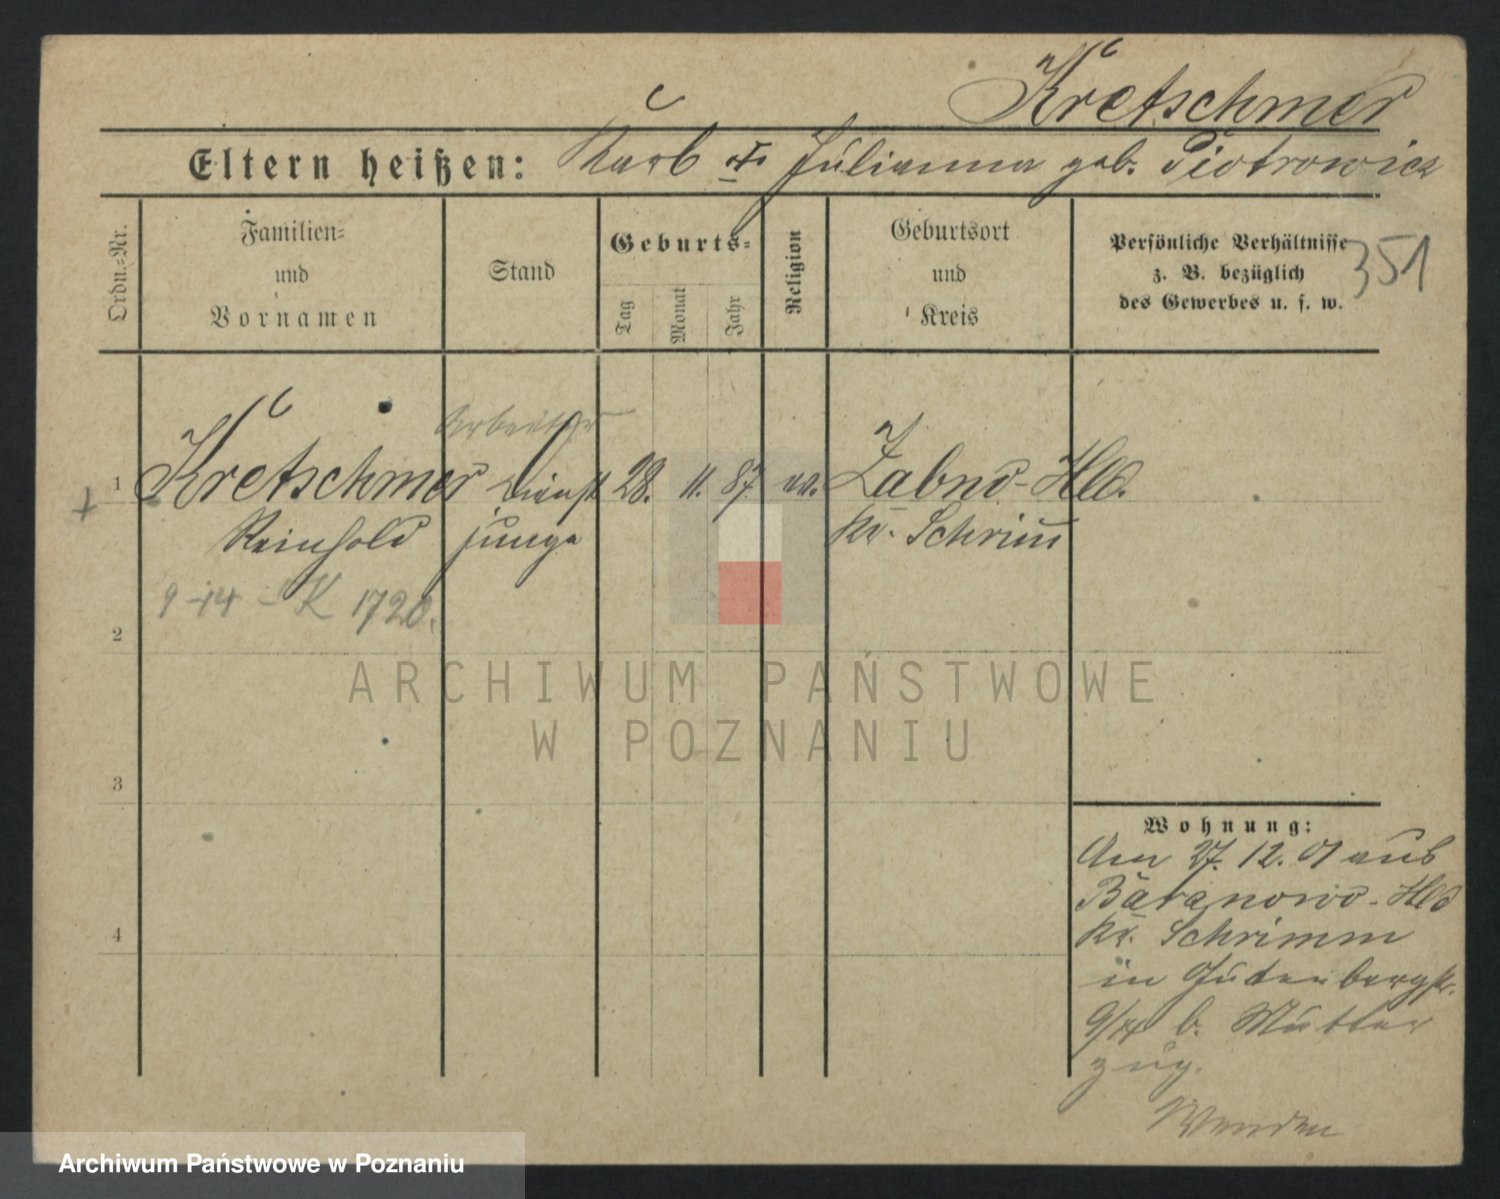 Kretschmer
Eltern heißen: Karb Julianna geb. Piotrowicz
Ordn.=Nr.
Familien=
und
Vornamen
Stand
Geburts=
Tag
Monat
Jahr
Religion
Geburtsort
und
Kreis
Persönliche Verhältnisse
z. B. bezüglich
des Gewerbes u. s. w.
351
Arbeiter
1 Kretschmer Dienst 28. 11. 87 ev. Zabno-Hld.
Reinhold junge Kr. Schrim̄
9-14 - K 1720.
2
3
4
Wohnung:
Am 27. 12. 01 aus
Baranowo-Hld
Kr. Schrimm
in Gutenbergstr.
9/14 b. Mutter
zug.
ARCHIWUM PAŃSTWOWE
W POZNANIU
Archiwum Państwowe w Poznaniu